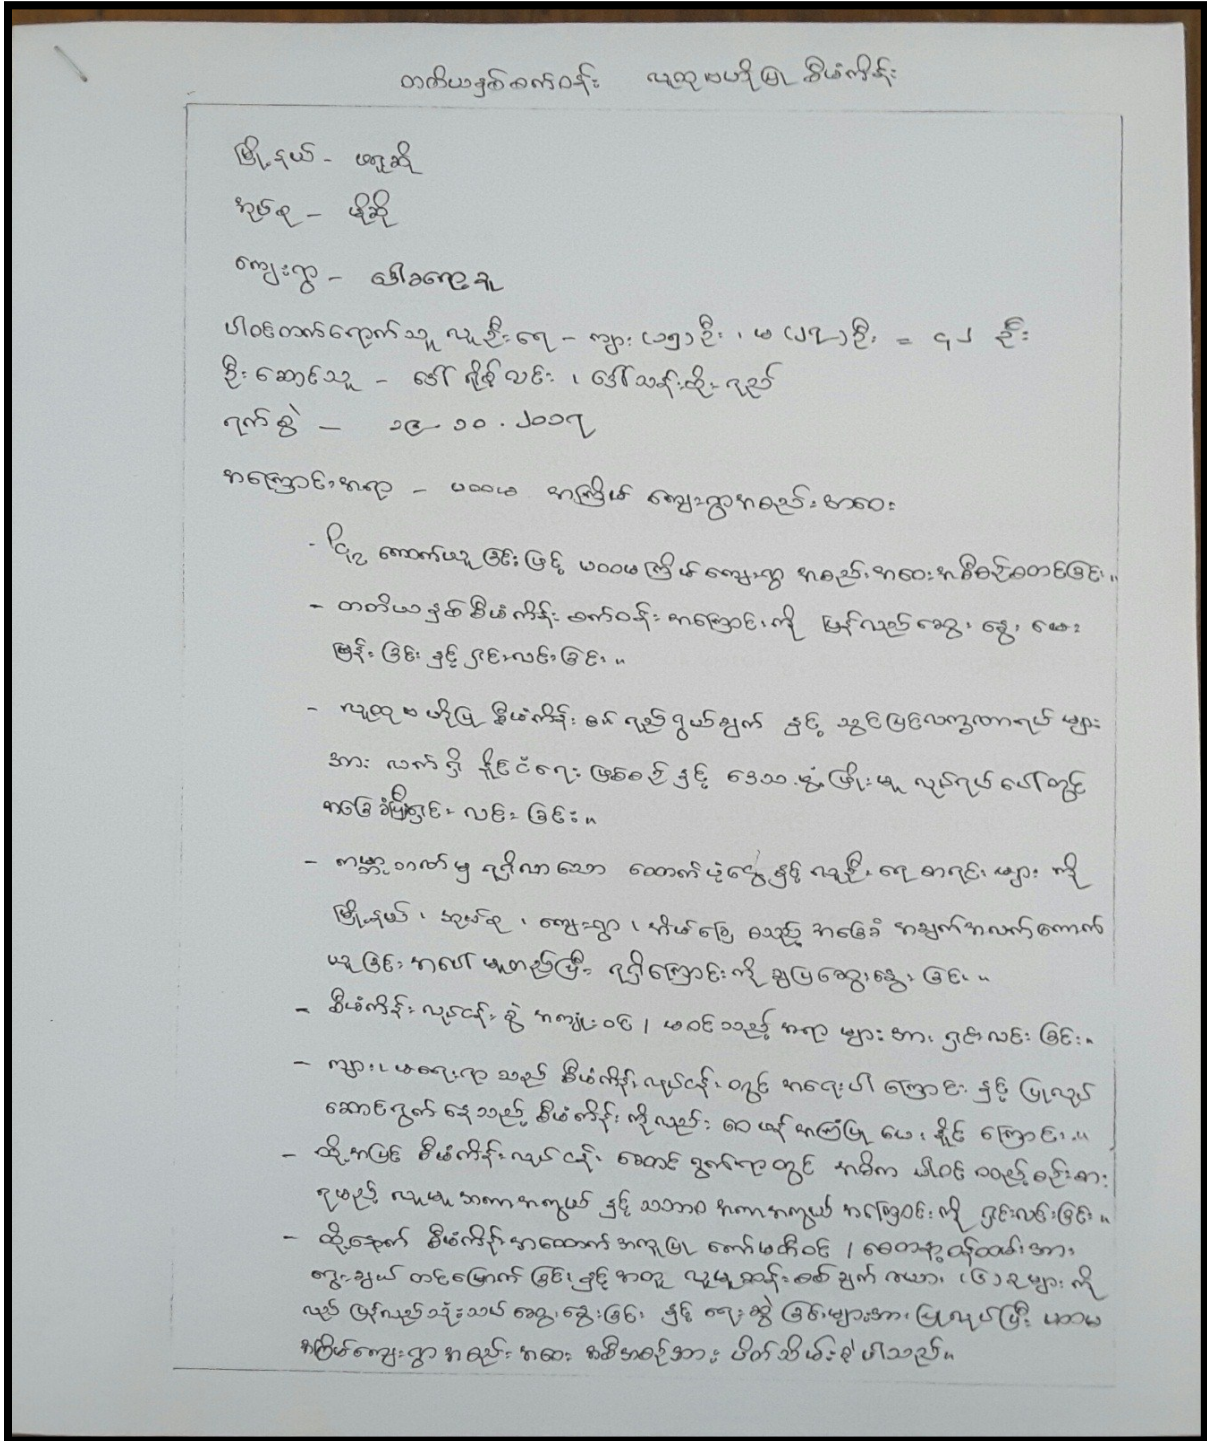 တတိယနှစ်စက်ဝန်း လူထုဗဟိုပြု စီမံကိန်း
မြို့နယ် - ဖရူဆို
အုပ်စု - ဖျိုဆို
ကျေးရွာ - ဒေါခရော့ခူ
ပါဝင်တက်ရောက်သူ လူဦးရေ - ကျား (၁၅) ဦး ၊ မ (၂၇) ဦး = ၄၂ ဦး
ဦးဆောင်သူ - ဒေါ် ၊ ဒေါ်သန်းထိုးရည်
ရက်စွဲ - ၁၉-၁၀-၂၀၁၇
အကြောင်းအရာ - ပထမ အကြိမ် ကျေးရွာအစည်းအဝေး
- ကောက်ယူခြင်းဖြင့် ပထမကြိမ်ကျေးရွာ အစည်းအဝေးအစီစဉ်စတင်ခြင်း။
- တတိယနှစ်စီမံကိန်း စက်ဝန်းအကြောင်းကို ပြန်လည်ဆွေးနွေး မေး
မြန်းခြင်း နှင့် ရှင်းလင်းခြင်း။
- လူထုဗဟိုပြု စီမံကိန်း၏ ရည်ရွယ်ချက် နှင့် သွင်ပြင်လက္ခဏာရပ် များ
အား လက်ရှိ နိုင်ငံရေး ဖြစ်စဉ် နှင့် ဒေသဖွံ့ဖြိုးမှု လုပ်ရပ်ပေါ်တွင်
အခြေခံပြီးရှင်းလင်းခြင်း။
- ကမ္ဘာ့ဘဏ်မှ ရရှိလာသော ထောက်ပံ့ငွေ နှင့် လူဦးရေစာရင်းများ ကို
မြို့နယ် ၊ အုပ်စု ၊ ကျေးရွာ ၊ အိမ်ခြေ စသည့် အခြေခံ အချက်အလက်ကောက်
ယူခြင်းအပေါ် မူတည်ပြီး ရရှိကြောင်းကို ချပြဆွေးနွေးခြင်း။
- စီမံကိန်းလုပ်ငန်းစွဲ အကျုံးဝင် / မဝင်သည့် အရာများအား ရှင်းလင်းခြင်း။
- ကျား၊မရေးရာ သည် စီမံကိန်းလုပ်ငန်းတွင် အရေးပါကြောင်း နှင့် ပြုလုပ်
ဆောင်ရွက်နေသည့် စီမံကိန်းကိုလည်း ဝေဖန်အကြံပြုပေးနိုင်ကြောင်း။
- ထို့အပြင် စီမံကိန်းလုပ်ငန်း ဆောင်ရွက်ရာတွင် အဓိက ပါဝင် စဉ်းစား
ရမည့် လူမှုအကာအကွယ် နှင့် သဘာဝအကာအကွယ် အကြောင်းကို ရှင်းလင်းခြင်း။
- ထို့နောက် စီမံကိန်းအထောက်အကူပြု ကော်မတီဝင် / စေတနာ့ဝန်ထမ်းအား
ရွေးချယ် တင်မြှောက်ခြင်း နှင့် အတူ လူမှုဆန်းစစ်ချက် ဇယား (၆) ခုများကို
လည်း ပြန်လည်သုံးသပ်ဆွေးနွေးခြင်း နှင့် ရေးဆွဲခြင်းများအား ပြုလုပ်ပြီး ပထမ
အကြိမ်ကျေးရွာအစည်းအဝေး အစီအစဉ်အား ပိတ်သိမ်းခဲ့ပါသည်။